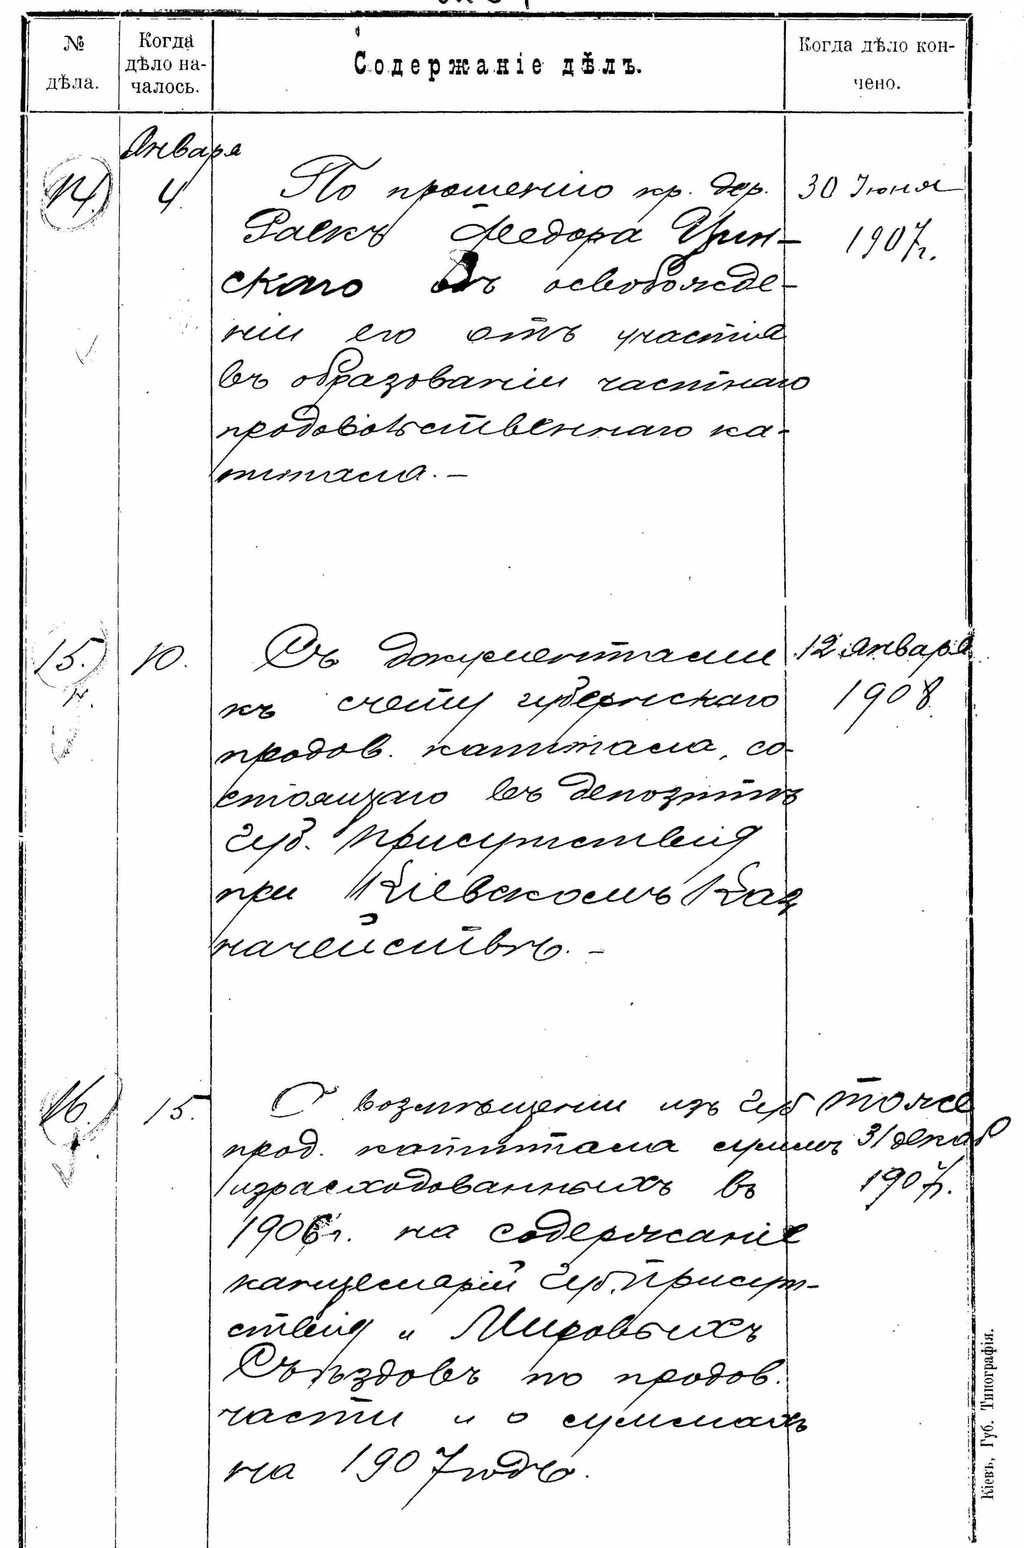 № дѣла.
Когда дѣло началось.
Содержаніе дѣлъ.
Когда дѣло кончено.
Января
14.
4
По прошенію кр. дер.
Раекъ Ѳедора Цин-
скаго объ освобожде-
ніи его отъ участія
въ образованіи частнаго
продовольственнаго ка-
питала. —
30 Іюня
1907г.
15.
10.
Съ документами
къ счету губернскаго
продов. капитала, со-
стоящаго въ депозитѣ
Губ. Присутствія
при Кіевскомъ Каз
начействѣ. —
12 января
1908
16.
15.
О возмѣщеніи изъ Губ
прод. капитала суммъ
израсходованныхъ въ
1906г. на содержаніе
канцелярій Губ. Присут-
ствія и Мировыхъ
Съѣздовъ по продов.
части и о суммахъ
на 1907 годъ.
тоже
31 декаб
1907г.
Кіевъ, Губ. Типографія.